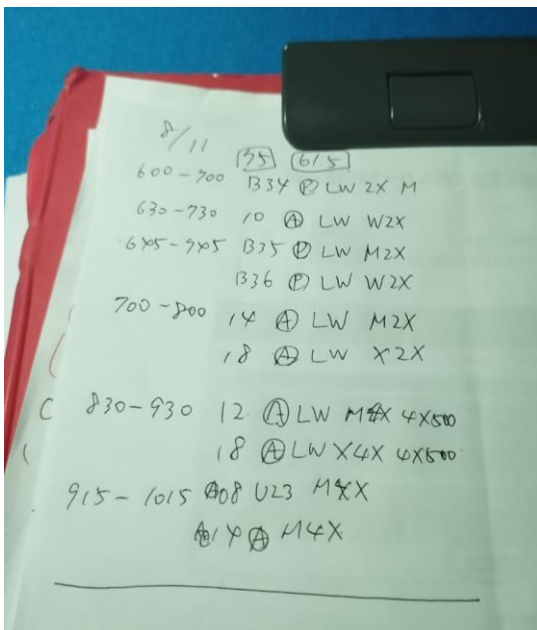 8/11
75 61.5
600-700 B34 Ⓟ LW 2X M
630-730 10 Ⓐ LW W2X
645-745 B35 Ⓟ LW M2X
B36 Ⓟ LW W2X
700-800 14 Ⓐ LW M2X
18 Ⓐ LW X2X
830-930 12. Ⓐ LW M4X 4X500
18 Ⓐ LW X4X 4X500
915-1015 08 U23 M4X
14 Ⓐ M4X